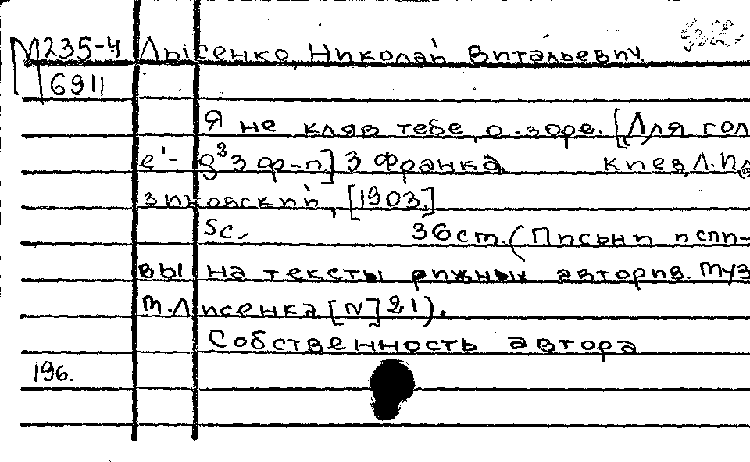 М235-4 Лысенко, Николай Витальевич
6911
Я не кляв тебе, о зоре. [Для гол
е¹- g² з ф-п] З Франка Киев, Л. И
зиковский, [1903.]
5с. 36ст. (Письни и спи-
вы на тексты рижных авторив. Муз
М. Лисенка [N] 21).
Собственность автора
196.